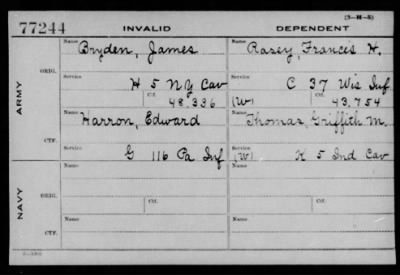 (3-H-5)
77244 INVALID DEPENDENT
ARMY
ORIG.
Name Bryden, James Name Rasey, Frances H.
Service H 5 NY Cav Service C 37 Wis Inf
Ctf. 48,336 (W) Ctf. 43,754
CTF.
Name Harron, Edward Name Thomas, Griffith M.
Service G 116 Pa Inf Service (W) K 5 Ind Cav
NAVY
ORIG.
Name Name
Service Ctf. Service Ctf.
CTF.
Name Name